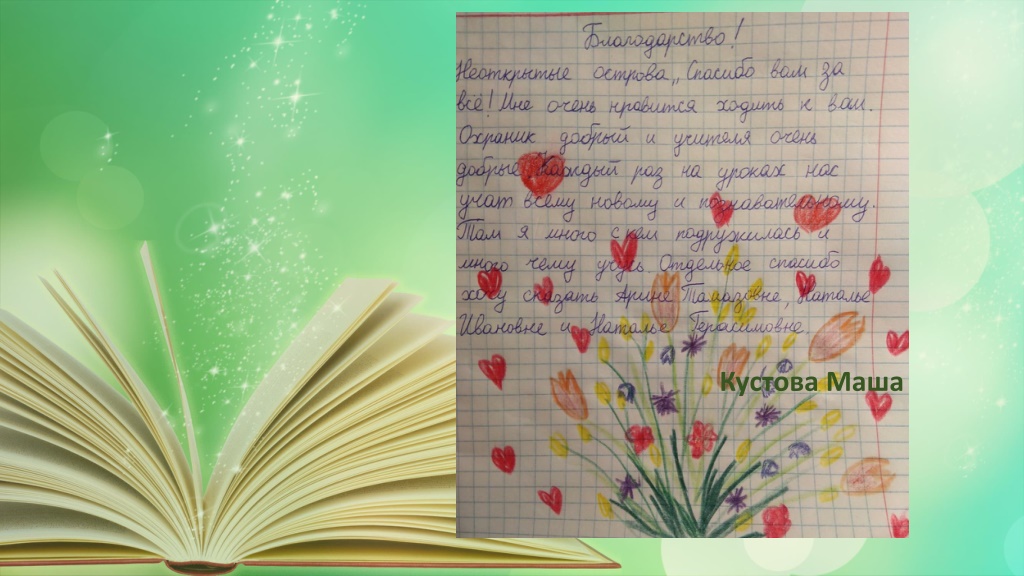 Благодарство!
Неоткрытые острова„ Спасибо вам за
всё! Мне очень нравится ходить к вам.
Охраник добрый и учителя очень
добрые. Каждый раз на уроках нас
учат всему новому и познавательному.
Там я много с кем подружилась и
много чему учусь. Отдельное спасибо
хочу сказать Арине Наталье
Ивановне и Наталье Герасимовне.
Кустова Маша